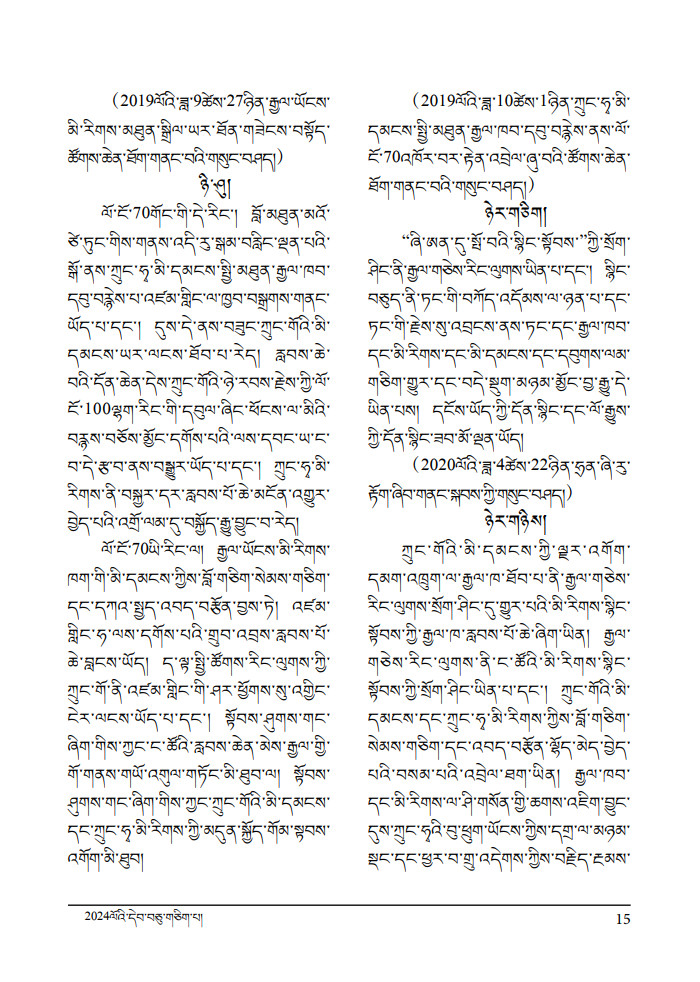 (2019ལོའི་ཟླ་9ཚེས་27ཉིན་རྒྱལ་ཡོངས་
མི་རིགས་མཐུན་སྒྲིལ་ཡར་ཐོན་གཟེངས་བསྟོད་
ཚོགས་ཆེན་ཐོག་གནང་བའི་གསུང་བཤད།)
ཉི་ཤུ།
ལོ་ངོ་70གོང་གི་དེ་རིང་། བློ་མཐུན་མའོ་
ཙེ་ཏུང་གིས་གནས་འདི་རུ་སྒམ་བླིང་ལྡན་པའི་
སྒོ་ནས་ཀྲུང་ཧྭ་མི་དམངས་སྤྱི་མཐུན་རྒྱལ་ཁབ་
དབུ་བརྙེས་པ་འཛམ་གླིང་ལ་ཁྱབ་བསྒྲགས་གནང་
ཡོད་པ་དང་། དུས་དེ་ནས་བཟུང་ཀྲུང་གོའི་མི་
དམངས་ཡར་ལངས་ཐོབ་པ་རེད། རླབས་ཆེ་
བའི་དོན་ཆེན་དེས་ཀྲུང་གོའི་ཉེ་རབས་རྗེས་ཀྱི་ལོ་
ངོ་100ལྷག་རིང་གི་དབུལ་ཞིང་ཕོངས་ལ་མིའི་
བརྙས་བཅོས་མྱོང་དགོས་པའི་ལས་དབང་ཡ་ང་
བ་དེ་རྩ་བ་ནས་བསྒྱུར་ཡོད་པ་དང་། ཀྲུང་ཧྭ་མི་
རིགས་ནི་བསྐྱར་དར་རླབས་པོ་ཆེ་མངོན་འགྱུར་
བྱེད་པའི་འགྲོ་ལམ་དུ་བསྐྱོད་རྒྱུ་བྱུང་བ་རེད།
ལོ་ངོ་70ཡི་རིང་ལ། རྒྱལ་ཡོངས་མི་རིགས་
ཁག་གི་མི་དམངས་ཀྱིས་བློ་གཅིག་སེམས་གཅིག་
དང་དཀའ་སྤྱད་འབད་བརྩོན་བྱས་ཏེ། འཛམ་
གླིང་ཧ་ལས་དགོས་པའི་གྲུབ་འབྲས་རླབས་པོ་
ཆེ་བླངས་ཡོད། ད་ལྟ་སྤྱི་ཚོགས་རིང་ལུགས་ཀྱི་
ཀྲུང་གོ་ནི་འཛམ་གླིང་གི་ཤར་ཕྱོགས་སུ་འགྱིང་
ངེར་ལངས་ཡོད་པ་དང་། སྟོབས་ཤུགས་གང་
ཞིག་གིས་ཀྱང་ང་ཚོའི་རླབས་ཆེན་མེས་རྒྱལ་གྱི་
གོ་གནས་གཡོ་འགུལ་གཏོང་མི་ཐུབ་ལ། སྟོབས་
ཤུགས་གང་ཞིག་གིས་ཀྱང་ཀྲུང་གོའི་མི་དམངས་
དང་ཀྲུང་ཧྭ་མི་རིགས་ཀྱི་མདུན་སྐྱོད་གོམ་སྟབས་
འགོག་མི་ཐུབ།
(2019ལོའི་ཟླ་10ཚེས་1ཉིན་ཀྲུང་ཧྭ་མི་
དམངས་སྤྱི་མཐུན་རྒྱལ་ཁབ་དབུ་བརྙེས་ནས་ལོ་
ངོ་70འཁོར་བར་རྟེན་འབྲེལ་ཞུ་བའི་ཚོགས་ཆེན་
ཐོག་གནང་བའི་གསུང་བཤད།)
ཉེར་གཅིག
“ཞི་ཨན་དུ་སྤོ་བའི་སྙིང་སྟོབས་”ཀྱི་སྲོག་
ཤིང་ནི་རྒྱལ་གཅེས་རིང་ལུགས་ཡིན་པ་དང་། སྙིང་
བཅུད་ནི་ཏང་གི་བཀོད་འདོམས་ལ་ཉན་པ་དང་
ཏང་གི་རྗེས་སུ་འབྲངས་ནས་ཏང་དང་རྒྱལ་ཁབ་
དང་མི་རིགས་དང་མི་དམངས་དང་དབུགས་ལམ་
གཅིག་གྱུར་དང་བདེ་སྡུག་མཉམ་མྱོང་བྱ་རྒྱུ་དེ་
ཡིན་པས། དངོས་ཡོད་ཀྱི་དོན་སྙིང་དང་ལོ་རྒྱུས་
ཀྱི་དོན་སྙིང་ཟབ་མོ་ལྡན་ཡོད།
(2020ལོའི་ཟླ་4ཚེས་22ཉིན་ཧྲན་ཞི་རུ་
རྟོག་ཞིབ་གནང་སྐབས་ཀྱི་གསུང་བཤད།)
ཉེར་གཉིས།
ཀྲུང་གོའི་མི་དམངས་ཀྱི་ལྗར་འགོག་
དམག་འཁྲུག་ལ་རྒྱལ་ཁ་ཐོབ་པ་ནི་རྒྱལ་གཅེས་
རིང་ལུགས་སྲོག་ཤིང་དུ་གྱུར་པའི་མི་རིགས་སྙིང་
སྟོབས་ཀྱི་རྒྱལ་ཁ་རླབས་པོ་ཆེ་ཞིག་ཡིན། རྒྱལ་
གཅེས་རིང་ལུགས་ནི་ང་ཚོའི་མི་རིགས་སྙིང་
སྟོབས་ཀྱི་སྲོག་ཤིང་ཡིན་པ་དང་། ཀྲུང་གོའི་མི་
དམངས་དང་ཀྲུང་ཧྭ་མི་རིགས་ཀྱིས་བློ་གཅིག་
སེམས་གཅིག་དང་འབད་བརྩོན་ལྷོད་མེད་བྱེད་
པའི་བསམ་པའི་འབྲེལ་ཐག་ཡིན། རྒྱལ་ཁབ་
དང་མི་རིགས་ལ་ཤི་གསོན་གྱི་ཆགས་འཇིག་བྱུང་
དུས་ཀྲུང་ཧྭའི་བུ་ཕྲུག་ཡོངས་ཀྱིས་དགྲ་ལ་མཉམ་
སྡང་དང་ཕྱར་བ་གྲུ་འདེགས་ཀྱིས་བརྗིད་ཉམས་
2024ལོའི་དེབ་བཅུ་གཅིག་པ།
15